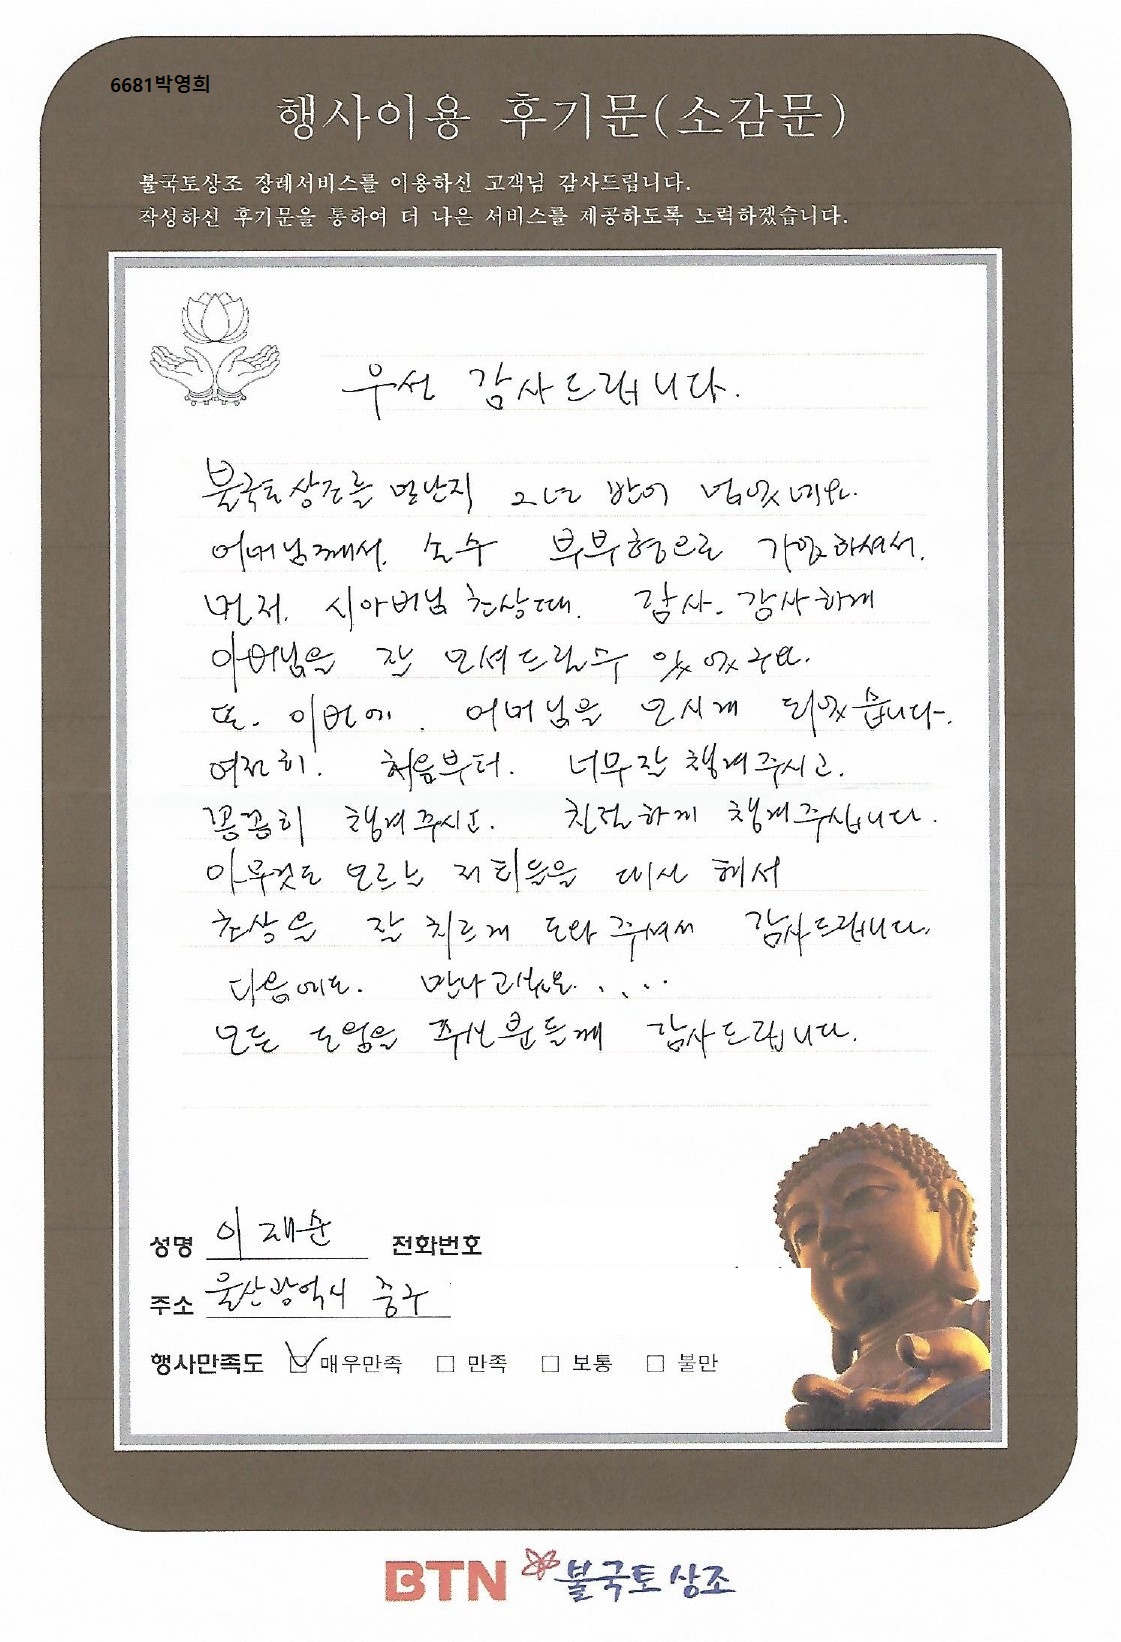 6681박영희
행사이용 후기문(소감문)
불국토상조 장례서비스를 이용하신 고객님 감사드립니다.
작성하신 후기문을 통하여 더 나은 서비스를 제공하도록 노력하겠습니다.
우선 감사드립니다.
불국토상조를 만난지 2년 반이 넘었네요.
어머님께서. 손수 부부형으로 가입하셔서.
먼저. 시아버님 초상때. 감사. 감사하게
아버님을 잘 모셔드릴수 있었구요.
또. 이번에. 어머님을 모시게 되었습니다.
여전히. 처음부터. 너무잘 챙겨주시고.
꼼꼼히 챙겨주시고. 친절하게 챙겨주십니다.
아무것도 모르는 저희들을 대신 해서
초상을 잘 치르게 도와 주셔서 감사드립니다.
다음에도. 만나고싶네요.....
모든 도움을 주신 분들께 감사드립니다.
성명 이재순 전화번호
주소 울산광역시 중구
행사만족도 ☑ 매우만족 □ 만족 □ 보통 □ 불만
BTN 불국토상조